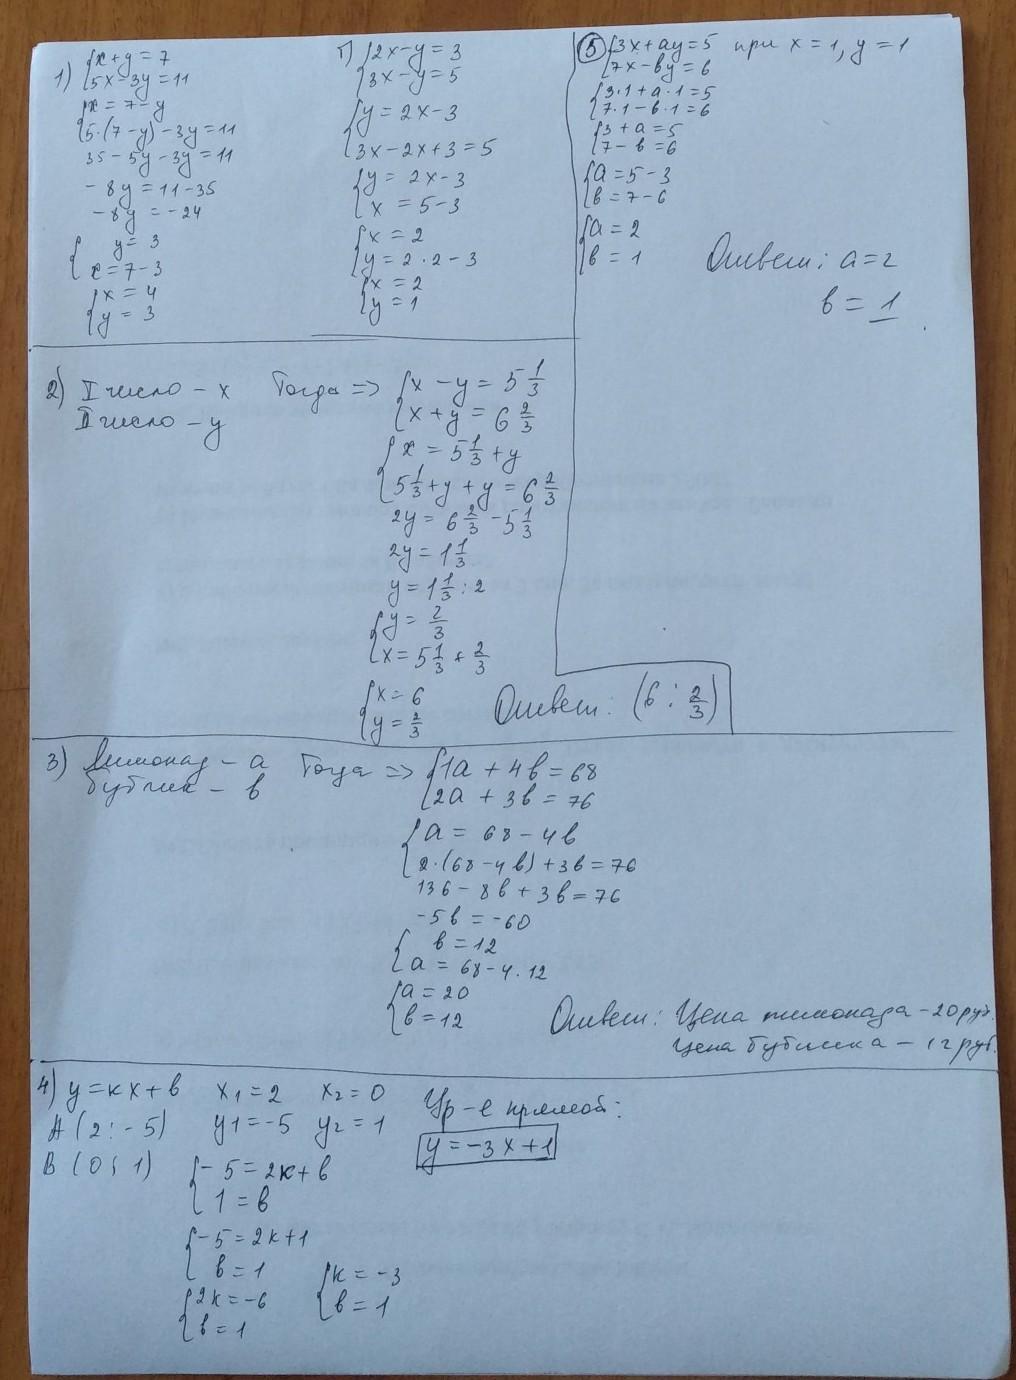 1) {x+y=7
5x-3y=11
{x=7-y
5·(7-y)-3y=11
35-5y-3y=11
-8y=11-35
-8y=-24
{y=3
x=7-3
{x=4
y=3
Г) {2x-y=3
3x-y=5
{y=2x-3
3x-2x+3=5
{y=2x-3
x=5-3
{x=2
y=2·2-3
{x=2
y=1
5 {3x+ay=5 при x=1, y=1
7x-by=6
{3·1+a·1=5
7·1-b·1=6
{3+a=5
7-b=6
{a=5-3
b=7-6
{a=2
b=1
Ответ: a=2
b=1
2) I число - x Тогда => {x-y=5 1/3
II число - y x+y=6 2/3
{x=5 1/3+y
5 1/3+y+y=6 2/3
2y=6 2/3-5 1/3
2y=1 1/3
y=1 1/3:2
{y=2/3
x=5 1/3+2/3
{x=6
y=2/3
Ответ: (6; 2/3)
3) Лимонад - a Тогда => {1a+4b=68
бублик - b 2a+3b=76
{a=68-4b
2·(68-4b)+3b=76
136-8b+3b=76
-5b=-60
{b=12
a=68-4·12
{a=20
b=12
Ответ: Цена лимонада - 20 руб.
Цена бублика - 12 руб.
4) y=kx+b x1=2 x2=0
A (2; -5) y1=-5 y2=1
B (0; 1)
{-5=2k+b
1=b
{-5=2k+1
b=1
{2k=-6
b=1
{k=-3
b=1
Ур-е прямой:
y=-3x+1